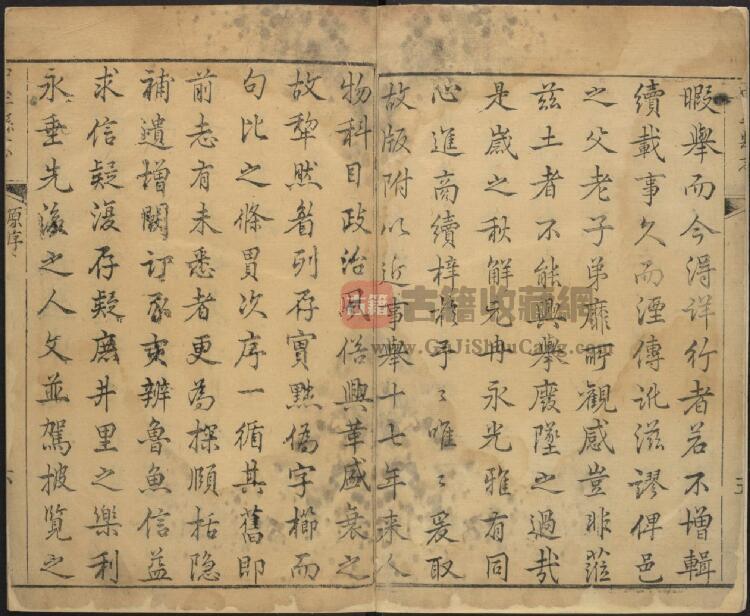 暇舉而今得詳行者若不增輯
續載事久而湮傳訛滋謬俾邑
之父老子弟靡所觀感豈非蒞
茲土者不能興舉廢墜之過哉
是歲之秋解元冉永光雅有同
心進商續梓於予予唯唯爰取
故版附以近事舉十七年來人
物科目政治風俗興革盛衰之
故犂然着列存實黜偽字櫛而
句比之條貫次序一循其舊即
前志有未悉者更為探順括隱
補遺增闕訂豕亥辨魯魚信益
求信疑復存疑庶井里之樂利
永垂先後之人文並駕披覽之
原序
古籍 古籍收藏網
www.GuJiShuCang.com